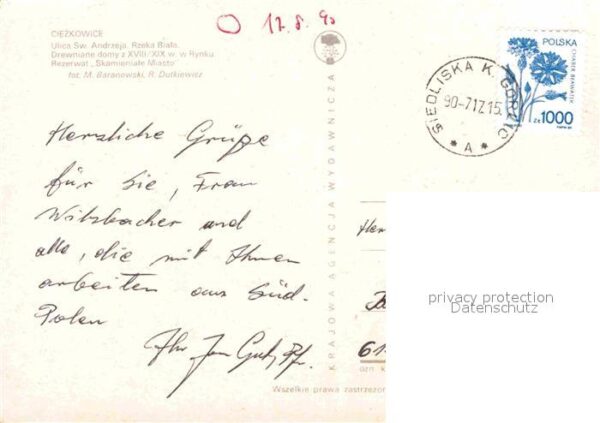 17.8.90
CIĘŻKOWICE
Ulica Św. Andrzeja. Rzeka Biała.
Drewniane domy z XVIII/XIX w. w Rynku
Rezerwat „Skamieniałe Miasto"
fot. M. Baranowski, R. Dutkiewicz
POLSKA
CHABER BŁAWATEK
ZŁ 1000
SIEDLISKA K. GORLIC
90-7.17.15
* A *
KRAJOWA AGENCJA WYDAWNICZA
Herzliche Grüße
für Sie, Frau
Witzbacher und
alle, die mit Ihnen
arbeiten aus Süd-
Polen
Ihr Jan
Her
61
Wszelkie prawa zastrzeżon
privacy protection
Datenschutz